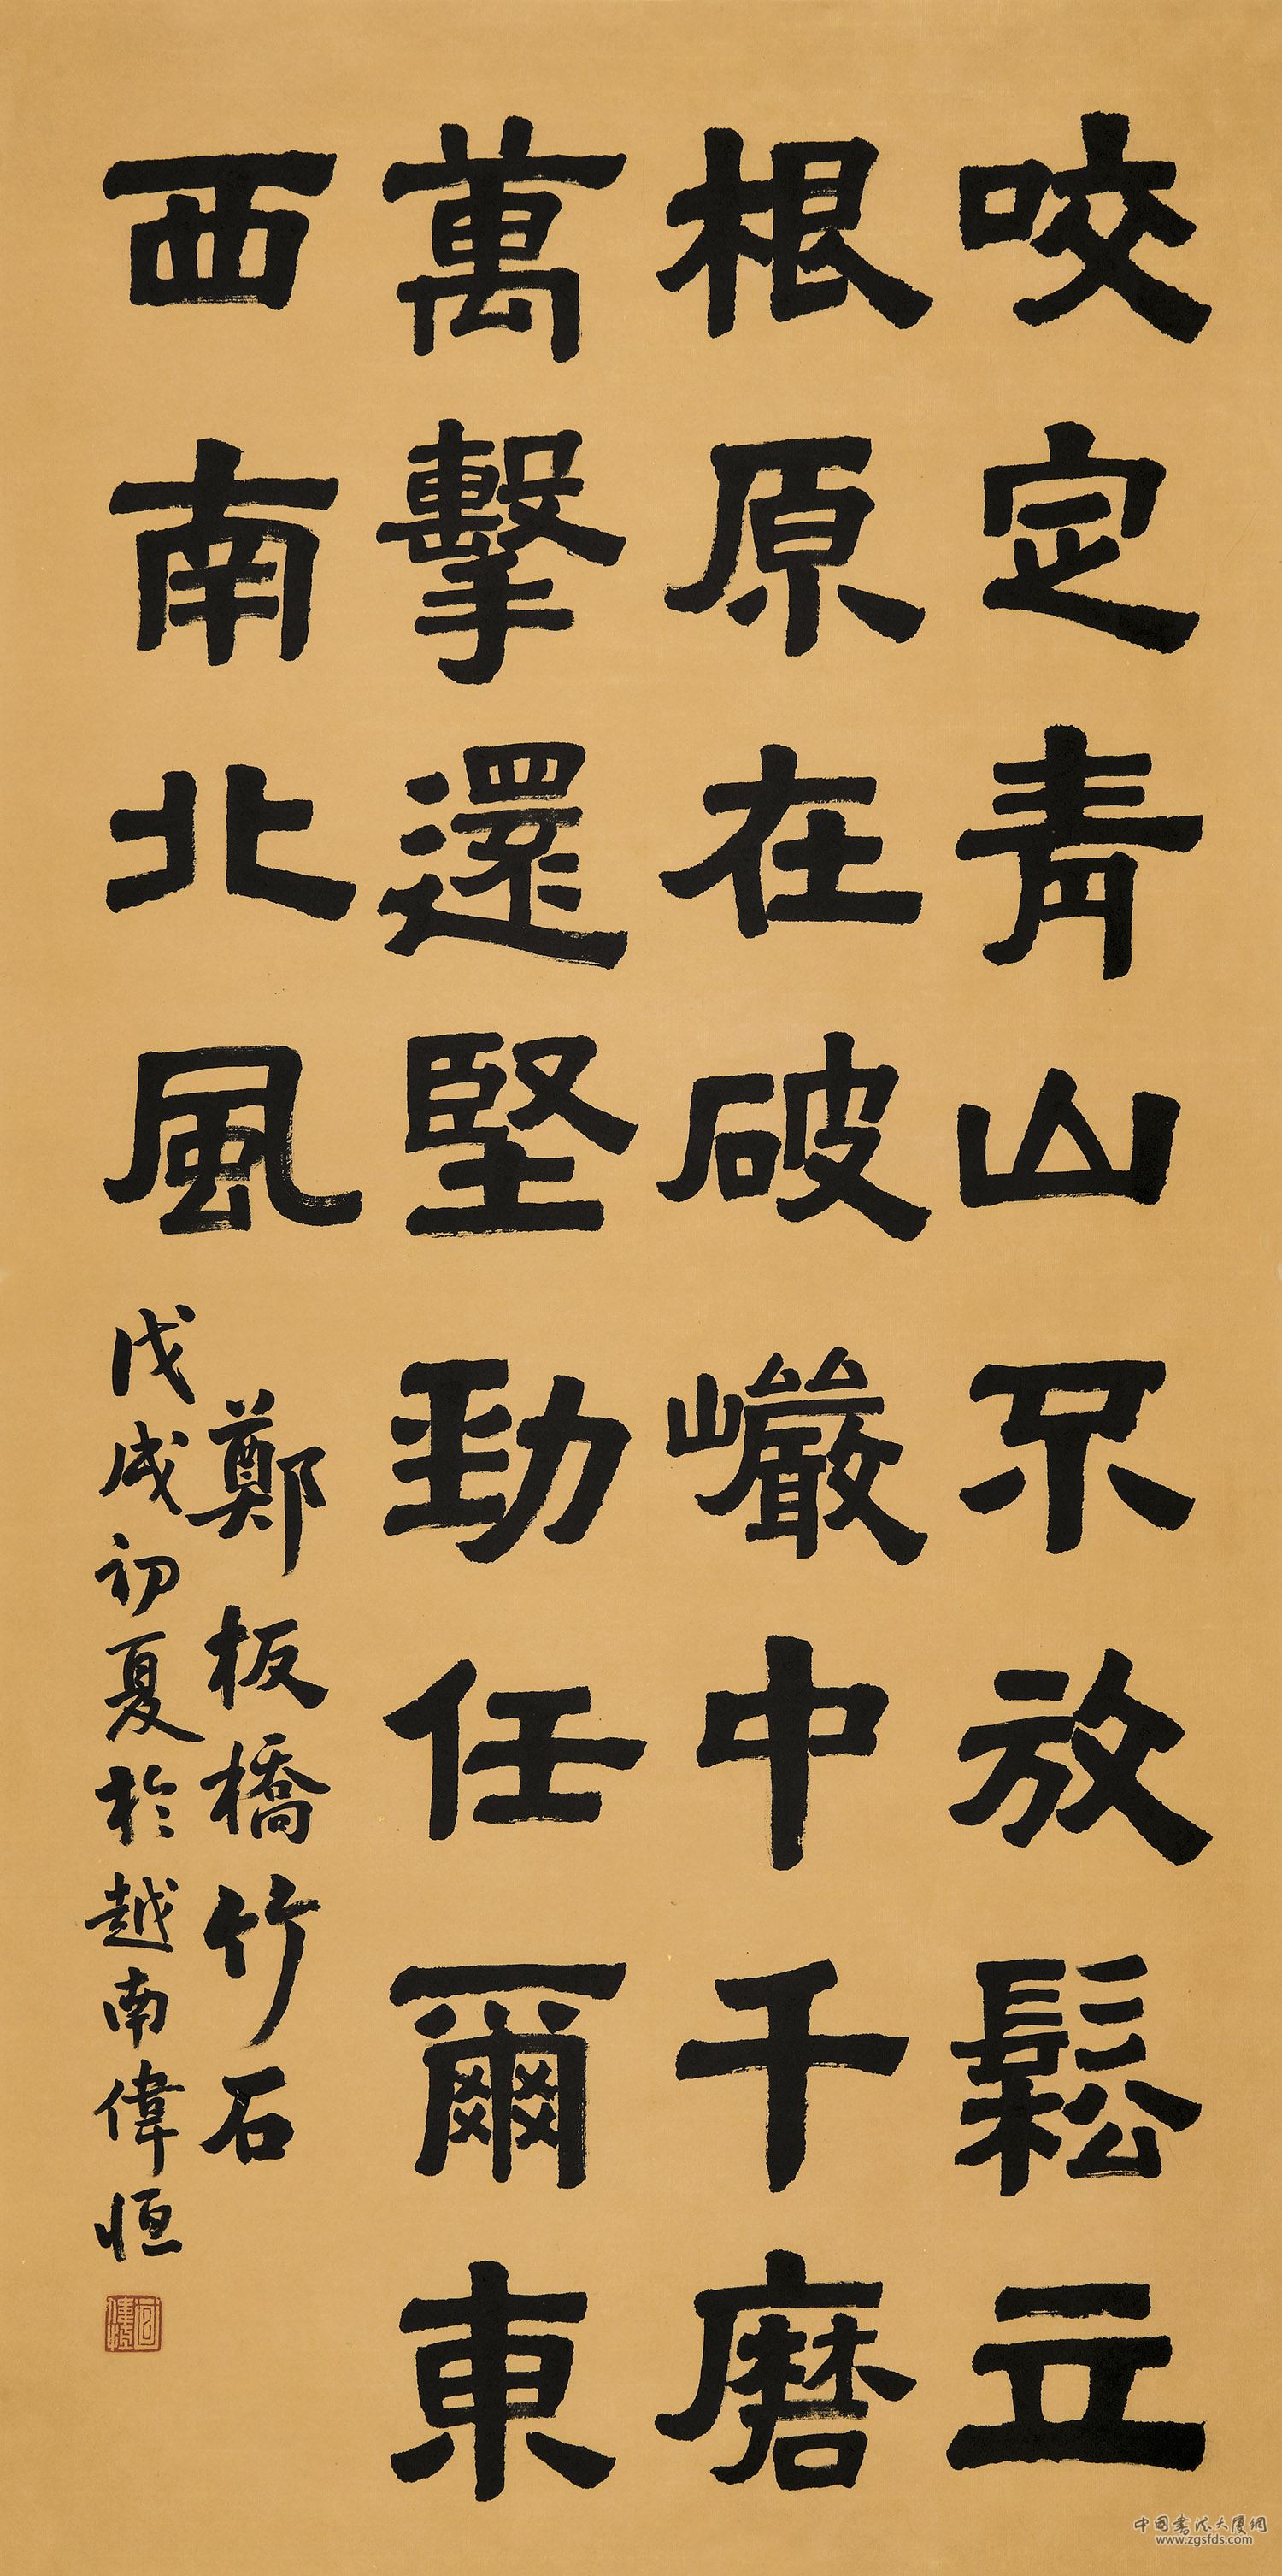 咬定青山不放鬆立
根原在破巖中千磨
萬擊還堅勁任爾東
西南北風
鄭板橋竹石
戊戌初夏於越南偉恒
中国书法大厦網
www.zgsfds.com